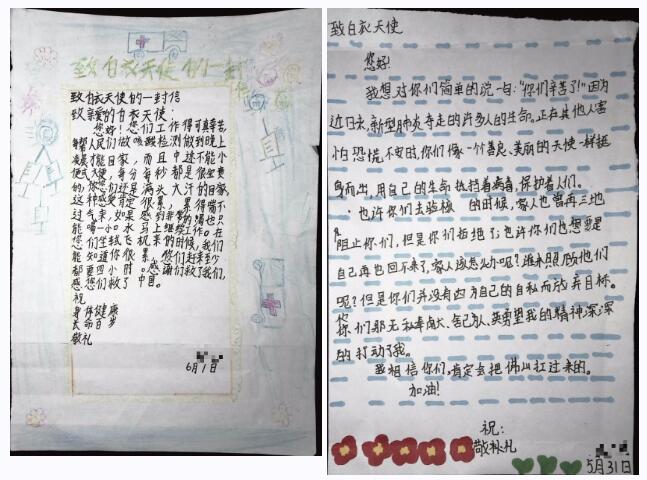 致白衣天使的一封信
致白衣天使的一封信
致亲爱的白衣天使：
您好！您们工作得可真辛苦，
帮人民们做核酸检测做到晚上
凌晨才能回家，而且中途不能小
便
天使，每分每秒都是很宝贵
的，您们还是满头大汗的回家，
这种感觉肯定很累，累得喘不
过气来，如果感到非常的渴也只
能喝一小口水马上继续工作。在
您们坐着飞机来的时候，我们
能知道你很累，您们赶来至少
都要四小时。感谢们救了我们，
感您们救了中国。
祝
身体健康
长命百岁
敬礼
6月1日
致白衣天使
您好！
我想对你们简单的说一句："你们辛苦了！"因为
近日来，新型肺炎夺走的许多人的生命。正在其他人害
怕恐慌，不安时，你们像一个善良、美丽的天使一样挺
身而出，用自己的生命抵挡着病毒，保护着人们。
也许你们去 的时候，家人也曾再三地
阻止你们，但是你们拒绝了；也许你们也想要是
自己再也回不来了，家人该怎么办呢？谁来照顾他们
呢？但是你们并没有因为自己的自私而放弃目标。
你们那无私奉献、舍己为人、英勇 我的精神深深
的打动了我。
我相信你们，肯定会把佛山扛过来的。
加油！
祝：
敬礼
5月31日